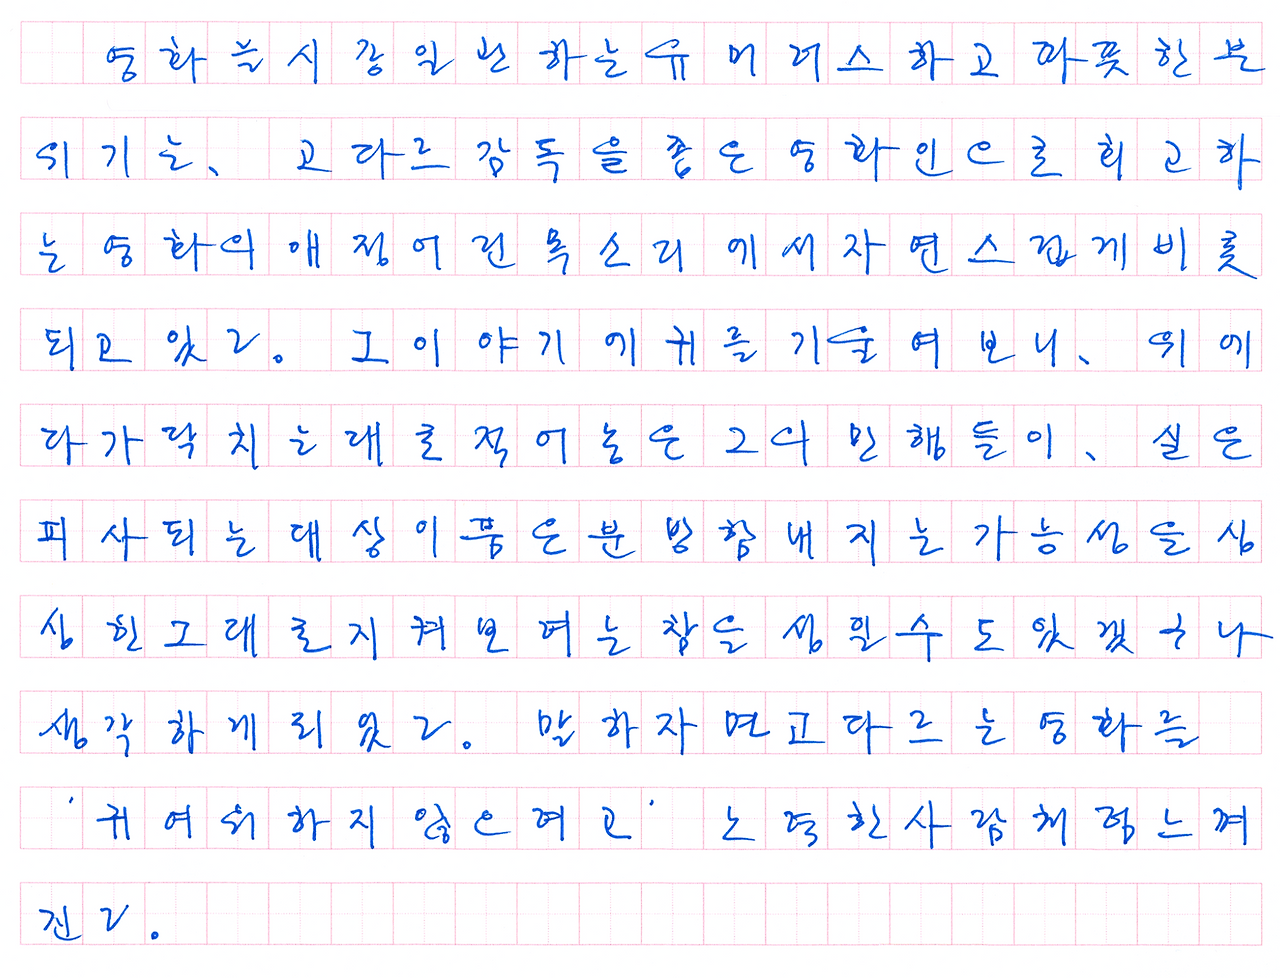 영화를 시종일관하는 유머러스하고 따뜻한 분
위기는, 고다르 감독을 좋은 영화인으로 회고하
는 영화의 애정어린 목소리에서 자연스럽게 비롯
되고 있다. 그 이야기에 귀를 기울여 보니, 위에
다가 닥치는대로 적어놓은 그의 만행들이, 실은
피사되는 대상이 품은 분방함 내지는 가능성을 싱
싱한 그대로 지켜보려는 참을성일 수도 있겠구나
생각하게 되었다. 말하자면 고다르는 영화를
'귀여워하지 않으려고' 노력한 사람처럼 느껴
진다.